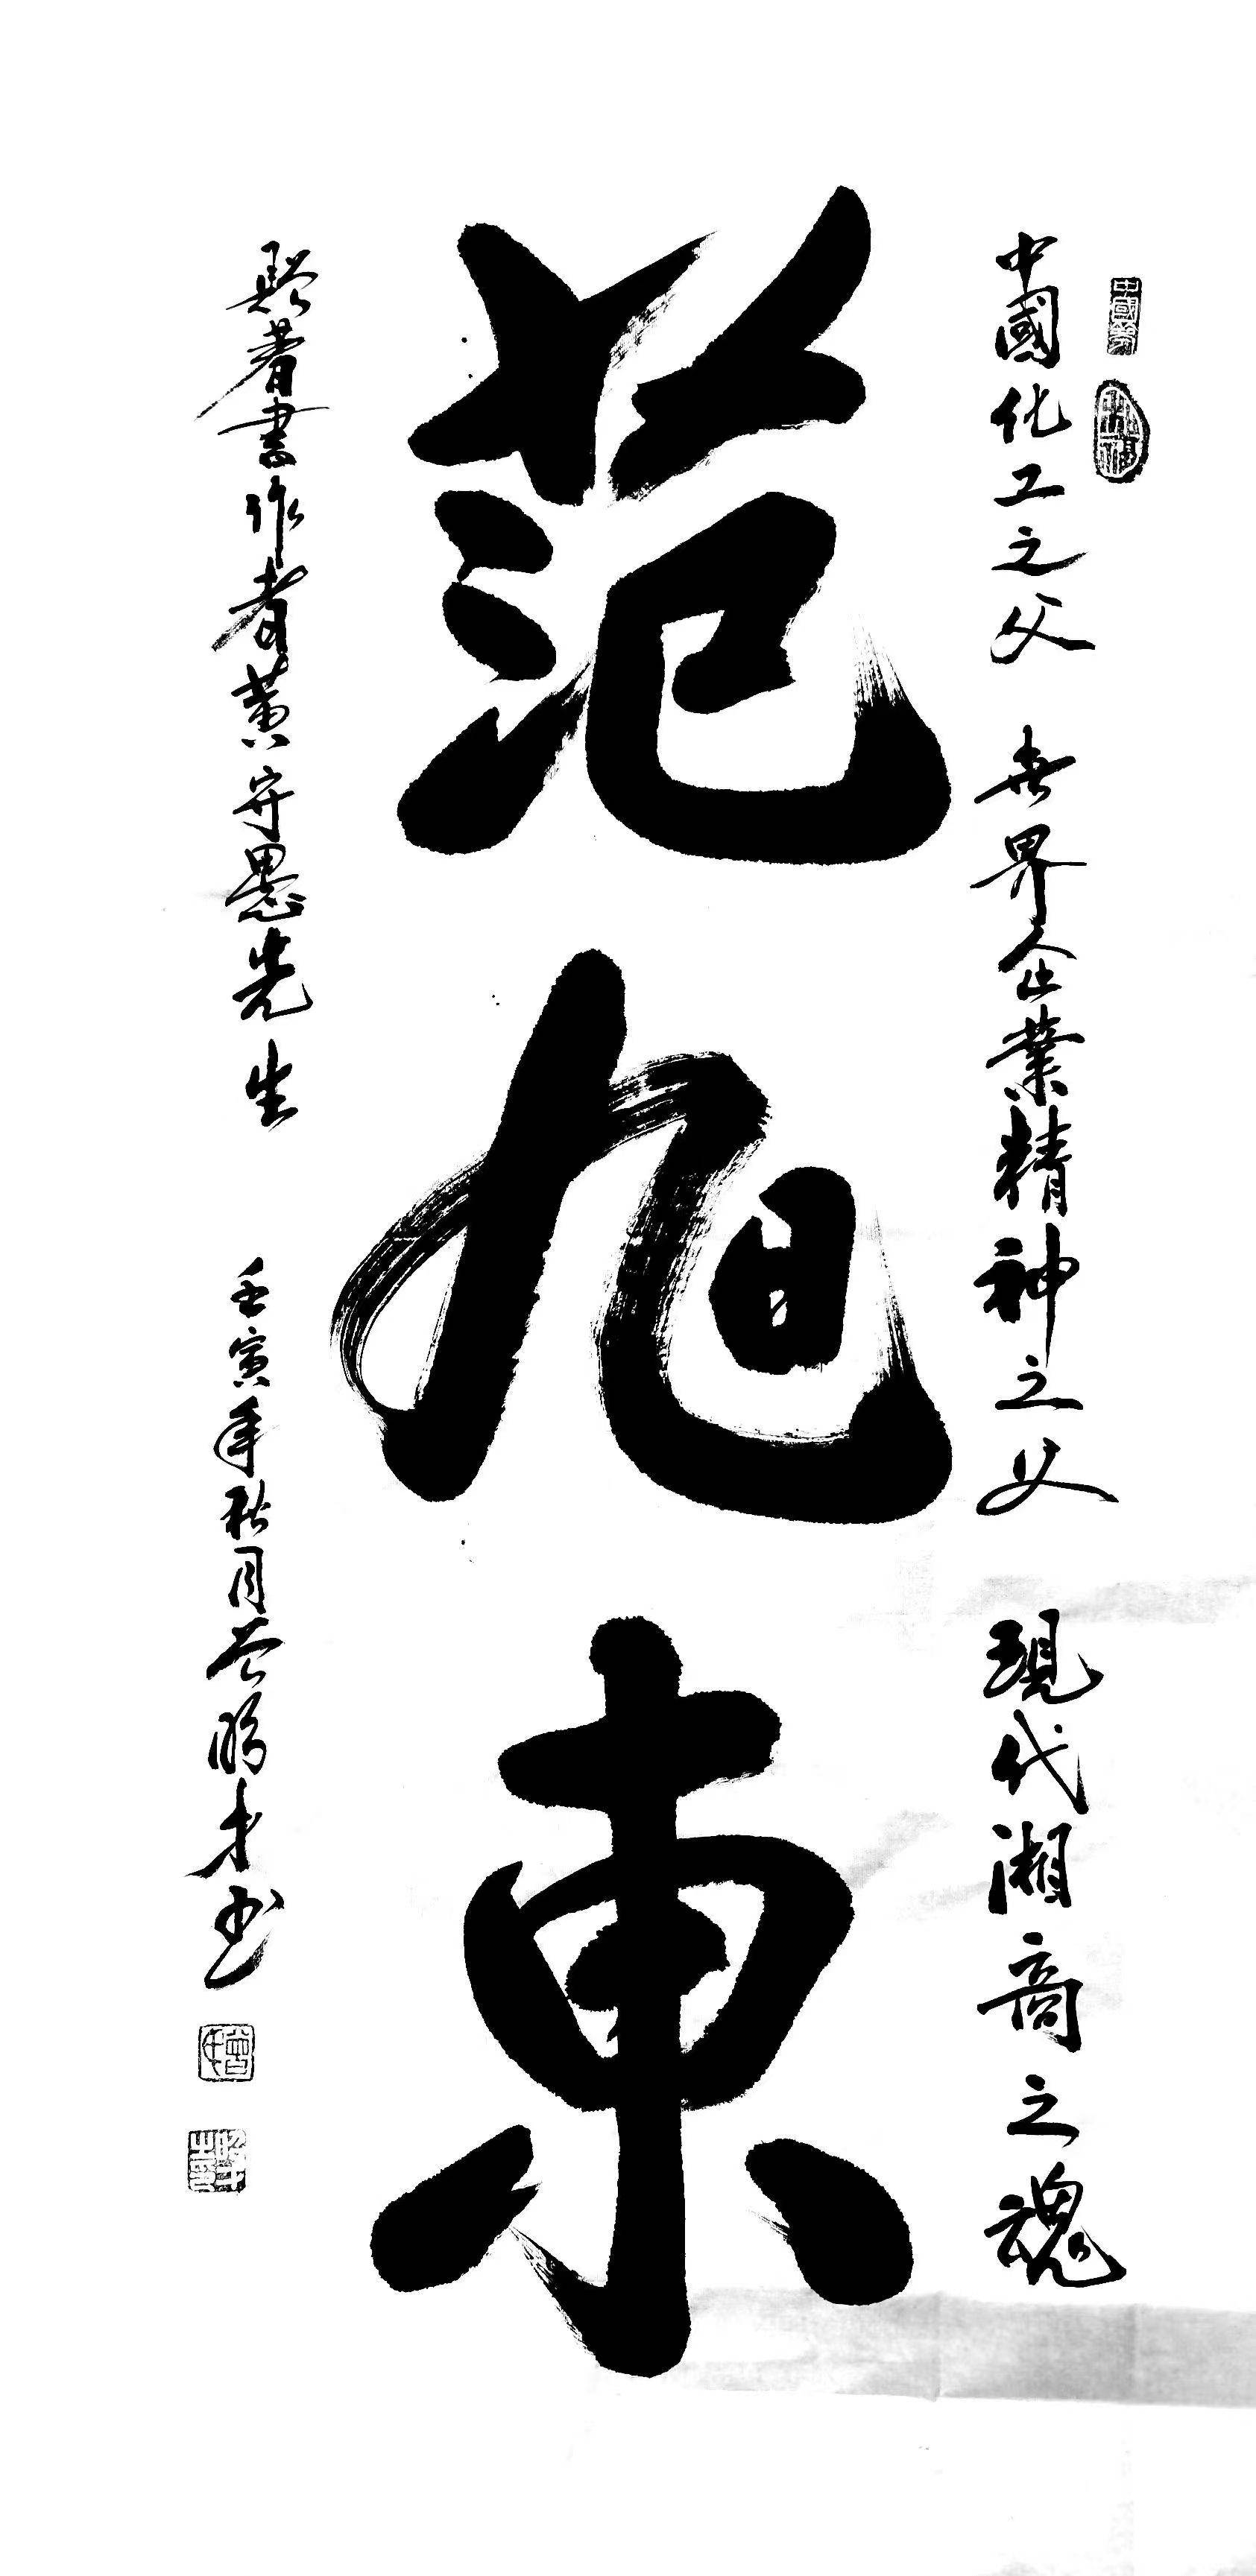 中國化工之父 世界企業精神之父 現代湘商之魂
范旭東
著書作者黄守愚先生 壬寅年秋月 才书
中國夢